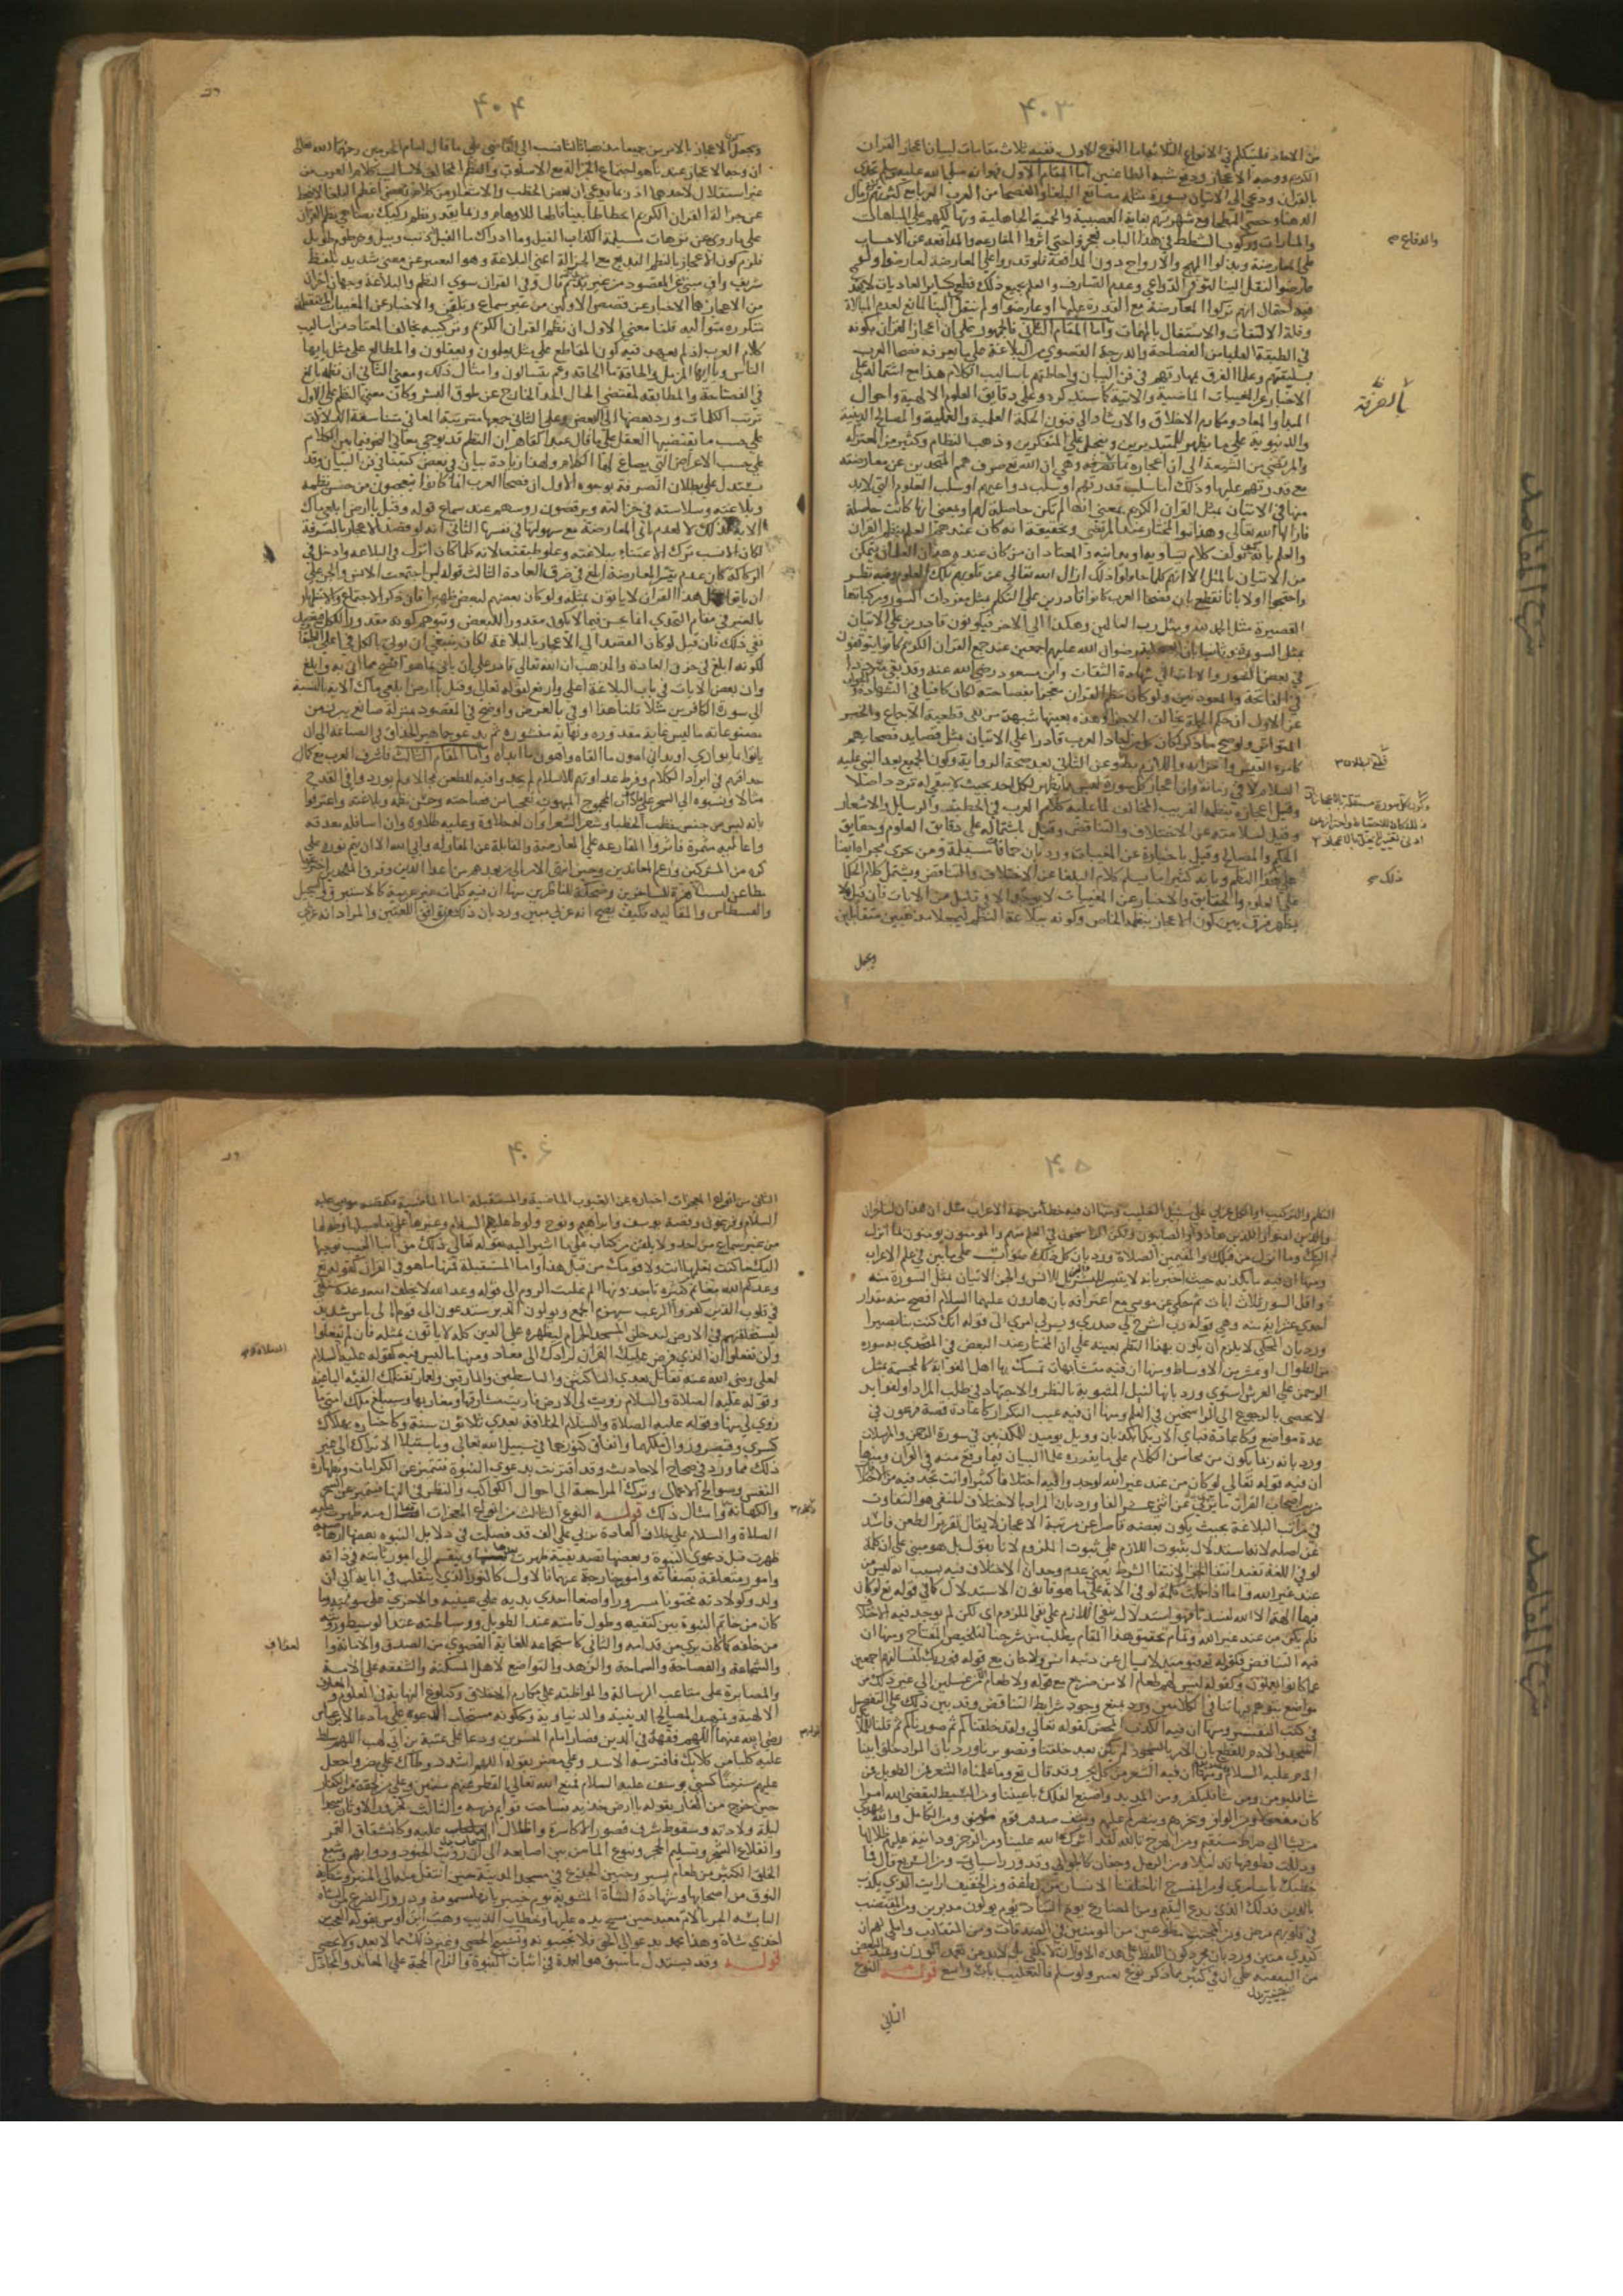 ۴۰۳
من الاحاد فلنتكلم في الانواع الثلاثة اما النوع الاول ففيه ثلاث مقامات لبيان اعجاز القران
ووجه الاعجاز ودفع شبه الطاعنين اما المقام الاول فهو انه صلى الله عليه وسلم تحدى
بالقران ودعى الى الاتيان بسورة مثله مصاقع البلغا والفصحا من العرب العربا مع كثرتهم رمال
الدهنا وحصى البطحا وشهرتهم بغاية العصبية والحمية الجاهلية وتهالكهم على المباهات
والمبارات وركوب الشطط في هذا الباب فعجزوا حتى اثروا المقارعة على الاحساب
على المعارضة وبذلوا المهج والارواح دون المدافعة فلو قدروا على المعارضة لعارضوا ولو
عارضوا لنقل الينا لتوفر الدواعي وعدم الصارف والعلم بجميع ذلك قطعي كساير العاديات لا يقدح
فيه احتمال انهم تركوا المعارضة مع القدرة عليها او عارضوا ولم ينقل الينا لمانع لعدم المبالاة
وقلة الالتفات والاشتغال بالمهمات واما المقام الثاني فالجمهور على ان اعجاز القران بكونه
في الطبقة العليا من الفصاحة والدرجة القصوى من البلاغة على ما يعرفه فصحا العرب
بسليقتهم وعلما الفرق بمهارتهم في فن البيان واحاطتهم باساليب الكلام هذا مع اشتماله على
الاخبار عن المغيبات الماضية والاتية كما سنذكره وعلى دقايق العلوم الالهية واحوال
المبدا والمعاد ومكارم الاخلاق والارشاد الى فنون الحكمة العلمية والعملية والمصالح الدينية
والدنيوية على ما يظهر للمتدبرين ويتجلى على المتفكرين وذهب النظام وكثير من المعتزلة
والمرتضى من الشيعة الى ان اعجازه بالصرفة وهي ان الله تع صرف همم المتحدين عن معارضته
مع قدرتهم عليها وذلك اما بسلب قدرتهم او بسلب دواعيهم او بسلب العلوم التي لابد
منها في الاتيان بمثل القران الكريم بمعنى انها لم تكن حاصلة لهم او بمعنى انها كانت حاصلة
فازالها الله تعالى وهذا هو المختار عند المرتضى وتحقيقه انه كان عندهم العلم بنظم القران
والعلم بانه كيف يولف كلام يساويه او يدانيه والمعتاد ان من كان عنده هذان العلمان يتمكن
من الاتيان بالمثل الا انهم كلما حاولوا ذلك ازال الله تعالى عن قلوبهم تلك العلوم وفيه نظر
واحتجوا اولا بانا نقطع بان فصحا العرب كانوا قادرين على التكلم بمثل مفردات السور ومركباتها
القصيرة مثل الحمد لله ومثل رب العالمين وهكذا الى الاخر فيكونون قادرين على الاتيان
بمثل السورة وثانيا بان الصحابة رضوان الله عليهم اجمعين عند جمع القران الكريم كانوا يتوقفون
في بعض السور والايات الى شهادة الثقات وابن مسعود رضي الله عنه قد بقي مترددا
في الفاتحة والمعوذتين ولو كان نظم القران معجزا بفصاحته لكان كافيا في الشهادة والجواب
عن الاول ان حكم الجملة يخالف الاجزا وهذه بعينها شبهة من نفى قطعية الاجماع والخبر
المتواتر ولو صح ما ذكر لكان كل من احاد العرب قادرا على الاتيان بمثل قصايد فصحايهم
كامرء القيس واضرابه وعن الثاني بعد صحة الرواية وكون الجمع بعد النبي عليه
السلام لا في زمانه وان اعجاز كل سورة ليس مما يظهر لكل احد بحيث لا يبقى له تردد اصلا
وقيل اعجازه بنظمه الغريب المخالف لما عليه كلام العرب في الخطب والرسايل والاشعار
وقيل لسلامته عن الاختلاف والتناقض وقيل باشتماله على دقايق العلوم وحقايق
الحكم والمصالح وقيل باخباره عن المغيبات ورد بان حماقات مسيلمة ومن يجري مجراه ايضا
على هذا النظم وبانه كثيرا ما يسلم كلام البلغا عن الاختلاف والتناقض ويشتمل كلام الحكما
على العلوم والحقايق والاخبار عن المغيبات لا يوجد الا في قليل من الايات فان قيل لا
يظهر فرق بين كون الاعجاز بنظمه الخاص وكونه ببلاغة النظم ليجعلا مذهبين متقابلين
ويجعل
والدفاع
بالصرفة
ذلك
شرح المقاصد
۴۰۴
ويجعل كون الاعجاز بالامرين جميعا مذهبا ثالثا نسب الى القاضي على ما قال امام الحرمين رحمهما الله تعالى
ان وجه الاعجاز عندنا هو اجتماع الجزالة مع الاسلوب والنظم المخالف لاساليب كلام العرب من
غير استقلال لاحدهما اذ ربما يدعى ان بعض الخطب والاشعار من كلام بعض اعظم البلغا لا ينحط
عن جزالة القران الكريم انحطاطا بينا قاطعا للاوهام وربما يقدر نظم ركيك يضاهي نظم القران
على ما روي عن ترهات مسيلمة الكذاب الفيل وما ادراك ما الفيل له ذنب وبيل وخرطوم طويل
فلزم كون الاعجاز بالنظم البديع مع الجزالة اعني البلاغة وهو التعبير عن معنى سديد بلفظ
شريف واف منبئ عن المقصود من غير مزيد قال وفي القران سوى النظم والبلاغة وجهان اخران
من الاعجاز هما الاخبار عن قصص الاولين من غير سماع وتلقين والاخبار عن المغيبات المستقبلة
متكررة متوالية قلنا معنى الاول ان نظم القران الكريم وتركيبه يخالف المعتاد من اساليب
كلام العرب اذ لم يعهد فيه كون المقاطع على مثل يعلمون ويفعلون والمطالع على مثل يا ايها
الناس ويا ايها المزمل والحاقة ما الحاقة وعم يتسالون وامثال ذلك ومعنى الثاني ان نظمه بلغ
في الفصاحة والمطابقة لمقتضى الحال الحد الخارج عن طوق البشر وكان معنى النظم على الاول
ترتيب الكلمات وضم بعضها الى البعض وعلى الثاني جمعها مترتبة المعاني متناسقة الدلالات
على حسب ما يقتضيه العقل على ما قال عبد القاهر ان النظم هو توخي معاني النحو فيما بين الكلم
على حسب الاغراض التي يصاغ لها الكلام ولهذا زيادة بيان في بعض كتبنا في فن البيان وقد
يستدل على بطلان الصرفة بوجوه الاول ان فصحا العرب انما كانوا يتعجبون من حسن نظمه
وبلاغته وسلاسته في جزالته ويرقصون روسهم عند سماع قوله وقيل يا ارض ابلعي ماك
الاية لذلك لا لعدم تاتي المعارضة مع سهولتها في نفسها الثاني انه لو قصد الاعجاز بالصرفة
لكان الانسب ترك الاعتناء ببلاغته وعلو طبقته لانه كلما كان انزل في البلاغة وادخل في
الركاكة كان عدم تيسر المعارضة ابلغ في خرق العادة الثالث قوله لئن اجتمعت الانس والجن على
ان ياتوا بمثل هذا القران لا ياتون بمثله ولو كان بعضهم لبعض ظهيرا فان ذكر الاجتماع والاستظهار
بالغير في مقام التحدي انما يحسن فيما لا يكون مقدورا للبعض ويتوهم كونه مقدورا للكل فيقصد
نفي ذلك فان قيل لو كان القصد الى الاعجاز بالبلاغة لكان ينبغي ان يوتى بالكل في اعلى الطبقات
لكونه ابلغ في خرق العادة والمذهب ان الله تعالى قادر على ان ياتي بما هو افصح مما اتى به وابلغ
وان بعض الايات في باب البلاغة اعلى وارفع كقوله تعالى وقيل يا ارض ابلعي ماك الاية بالنسبة
الى سورة الكافرين مثلا قلنا هذا اوفى بالغرض واوضح في المقصود بمنزلة صانع يبرز من
مصنوعاته ما ليس غاية مقدوره ونهاية ميسوره ثم يدعو جماهير الحذاق في الصناعة الى ان
ياتوا بما يوازي او يداني دون ما القاه واهون ما ابداه واما المقام الثالث فاشرف العرب مع كمال
حذاقتهم في اسرار الكلام وفرط عداوتهم للاسلام لم يجدوا فيه للطعن مجالا ولم يوردوا في القدح
مقالا ونسبوه الى السحر على ما هو داب المحجوج المبهوت تعجبا من فصاحته وحسن نظمه وبلاغته واعترفوا
بانه ليس من جنس خطب الخطبا وشعر الشعرا وان له حلاوة وعليه طلاوة وان اسافله مغدقة
واعاليه مثمرة فاثروا المقارعة على المعارضة والمقابلة على المقاولة وابى الله الا ان يتم نوره على
كره من المشركين ورغم المعاندين وحين انتهى الامر الى من بعدهم من اعدا الدين وفرق الملحدين اخترعوا
مطاعن ليست الا هزءة للساخرين وضحكة للناظرين منها ان فيه كلمات غير عربية كالاستبرق والسجيل
والقسطاس والمقاليد فكيف يصح انه عربي مبين ورد بان ذلك من توافق اللغتين والمراد انه عربي
۴۰۵
النظم والتركيب او الكل عربي على سبيل التغليب ومنها ان فيه خطا من جهة الاعراب مثل ان هذان لساحران
وان الذين امنوا والذين هادوا والصابئون ولكن الراسخون في العلم منهم والمومنون يومنون بما انزل
اليك وما انزل من قبلك والمقيمين الصلاة ورد بان كل ذلك صواب على ما بين في علم الاعراب
ومنها ان فيه ما يكذبه حيث اخبر بانه لا يتيسر للبشر بل للانس والجن الاتيان بمثل السورة منه
واقل السور ثلاث ايات ثم حكى عن موسى مع اعترافه بان هارون عليهما السلام افصح منه مقدار
احدى عشر اية منه وهي قوله رب اشرح لي صدري ويسر لي امري الى قوله انك كنت بنا بصيرا
ورد بان المحكي لا يلزم ان يكون بهذا النظم بعينه على ان المختار عند البعض في التحدي به سورة
من الطوال او عشر من الاوساط ومنها ان فيه متشابهات تمسك بها اهل الغواية كالمجسمة بمثل
الرحمن على العرش استوى ورد بانها لنيل المثوبة بالنظر والاجتهاد في طلب المراد او لفوايد
لا تحصى بالرجوع الى الراسخين في العلم ومنها ان فيه عيب التكرار كاعادة قصة فرعون في
عدة مواضع وكاعادة فباي الا ربكما تكذبان وويل يومئذ للمكذبين في سورة الرحمن والمرسلات
ورد بانه ربما يكون من محاسن الكلام على ما يقرره علما البيان فيما وقع منه في القران ومنها
ان فيه قوله تعالى لو كان من عند غير الله لوجدوا فيه اختلافا كثيرا وانت تجد فيه من الاختلاف
في مراتب البلاغة بحيث يكون بعضه قاصرا عن مرتبة الاعجاز لا يقال تقرير الطعن فاسد
عن اصله لانه استدلال بثبوت اللازم على ثبوت الملزوم لانا نقول بل هو مبني على ان كلمة
لو في اللغة تفيد انتفا الجزا لانتفا الشرط يعني عدم وجدان الاختلاف فيه بسبب انه ليس من
عند غير الله واما اذا جعلت كلمة لو في الاية على ما هو قانون الاستدلال كما في قوله تع لو كان
فيهما الهة الا الله لفسدتا فهو استدلال بنفي اللازم على نفي الملزوم اي لكن لم يوجد فيه الاختلاف
فلم يكن من عند غير الله وتمام تحقيق هذا المقام يطلب من شرحنا لتلخيص المفتاح ومنها ان
فيه التناقض كقوله فيومئذ لا يسال عن ذنبه انس ولا جان مع قوله فوربك لنسالنهم اجمعين
عما كانوا يعملون وكقوله ليس لهم طعام الا من ضريع مع قوله ولا طعام الا من غسلين الى غير ذلك من
مواضع يتوهم فيها تنافي الكلامين ورد بمنع وجود شرايط التناقض وقد بين ذلك على التفصيل
في كتب التفسير ومنها ان فيه الكذب المحض كقوله تعالى ولقد خلقناكم ثم صورناكم ثم قلنا للملا
اسجدوا لادم للقطع بان الامر بالسجود لم يكن بعد خلقنا وتصويرنا ورد بان المراد خلق ابينا
ادم عليه السلام ومنها ان فيه الشعر من كل بحر وقد قال تع وما علمناه الشعر فمن الطويل من
شا فليومن ومن شا فليكفر ومن المديد واصنع الفلك باعيننا ومن البسيط ليقضي الله امرا
كان مفعولا ومن الوافر ويخزهم وينصركم عليهم ويشف صدور قوم مومنين ومن الكامل والله يهدي
من يشا الى صراط مستقيم ومن الهزج تالله لقد اثرك الله علينا ومن الرجز ودانية عليهم ظلالها
وذللت قطوفها تذليلا ومن الرمل وجفان كالجواب وقدور راسيات ومن السريع قال فما
خطبك يا سامري ومن المنسرح انا خلقنا الانسان من نطفة ومن الخفيف ارايت الذي يكذب
بالدين فذلك الذي يدع اليتيم ومن المضارع يوم التناد يوم تولون مدبرين ومن المقتضب
في قلوبهم مرض ومن المجتث مطوعين من المومنين في الصدقات ومن المتقارب واملي لهم ان
كيدي متين ورد بان مجرد كون اللفظ على هذه الاوزان لا يكفي
على ان في كثير مما ذكر نوع تغيير ولو سلم فالتغليب باب واسع قوله النوع
الثاني
شرح المقاصد
۴۰۶
الثاني من انواع المعجزات اخباره عن الغيوب الماضية والمستقبلة اما الماضية فكقصة موسى عليه
السلام وفرعون وقصة يوسف وابراهيم ونوح ولوط عليهم السلام وغيرها على تفاصيلها وطولها
من غير سماع من احد ولا تلقن من كتاب على ما اشير اليه بقوله تعالى ذلك من انبا الغيب نوحيها
اليك ما كنت تعلمها انت ولا قومك من قبل هذا واما المستقبلة فمنها ما هو في القران كقوله تع
وعدكم الله مغانم كثيرة تاخذونها الم غلبت الروم الى قوله وعد الله لا يخلف الله وعده سنلقي
في قلوب الذين كفروا الرعب سيهزم الجمع ويولون الدبر ستدعون الى قوم اولي باس شديد
ليستخلفنهم في الارض لتدخلن المسجد الحرام ليظهره على الدين كله لا ياتون بمثله فان لم تفعلوا
ولن تفعلوا ان الذي فرض عليك القران لرادك الى معاد ومنها ما ليس فيه كقوله عليه السلام
لعلي رضي الله عنه تقاتل بعدي الناكثين والقاسطين والمارقين ولعمار تقتلك الفئة الباغية
وقوله عليه الصلاة والسلام زويت لي الارض فاريت مشارقها ومغاربها وسيبلغ ملك امتي ما
زوي لي منها وقوله عليه الصلاة والسلام الخلافة بعدي ثلاثون سنة وكاخباره بهلاك
كسرى وقيصر وزوال ملكهما وانفاق كنوزهما في سبيل الله تعالى وباستيلا الاتراك الى غير
ذلك مما ورد في صحاح الاحاديث وقد اقترنت بدعوى النبوة فتتميز عن الكرامات وبطهارة
النفس وصوالح الاعمال وترك المراجعة الى احوال الكواكب والنظر في الهيئات فتتميز عن السحر
والكهانة وامثال ذلك قوله النوع الثالث من انواع المعجزات افعال منه ظهرت عليه
الصلاة والسلام على خلاف العادة تربي على الف قد فصلت في دلايل النبوة بعضها ارهاصية
ظهرت قبل دعوى النبوة وبعضها تصديقية ظهرت بعدها وتنقسم الى امور ثابتة في ذاته
وامور متعلقة بصفاته وامور خارجة عنهما فالاول كالنور الذي ينتقل في ابايه الى ان
ولد وكولادته مختونا مسرورا واضعا احدى يديه على عينيه والاخرى على سوءته وما
كان من خاتم النبوة بين كتفيه وطول قامته عند الطويل ووساطته عند الوسيط ورويته
من خلفه كما كان يرى من قدامه والثاني كاستجماعه للغاية القصوى من الصدق والامانة و
والشجاعة والفصاحة والسماحة والزهد والتواضع لاهل المسكنة والشفقة على الامة
والمصابرة على متاعب الرسالة والمواظبة على مكارم الاخلاق وكبلوغ النهاية في العلوم
الالهية وتمهيد المصالح الدينية والدنياوية وككونه مستجاب الدعوة على ما دعا لابن عباس
رضي الله عنهما اللهم فقهه في الدين فصار امام المفسرين ودعا على عتبة بن ابي لهب اللهم سلط
عليه كلبا من كلابك فافترسه الاسد وعلى مضر بقوله اللهم اشدد وطاك على مضر واجعل
عليهم سنين كسني يوسف عليه السلام فمنع الله تعالى القطر عنهم سنين
حين خرج من الغار بقوله يا ارض خذيه فساخت قوايم فرسه والثالث كخرور الاوثان سجدا
ليلة ولادته وسقوط شرف قصور الاكاسرة واظلال السحاب عليه وكانشقاق القمر
وانقلاع الشجر وتسليم الحجر ونبوع الما من بين اصابعه الى ان رويت الجنود ودوابهم وشبع
الخلق الكثير من طعام يسير وحنين الجذع في مسجد المدينة حين انتقل منه الى المنبر وشكاية
النوق من اصحابها وشهادة الشاة المشوية يوم خيبر بانها مسمومة ودرور الضرع من شاة
احذي شاة وهذا محمد يدعو الى الحق فلا تجيبونه وتسبيح الحصى وغير ذلك مما لا يعد ولا يحصى
قوله وقد يستدل ما سبق هو العمدة في اثبات النبوة والزام الحجة على المعاند والمجادل
شرح المقاصد